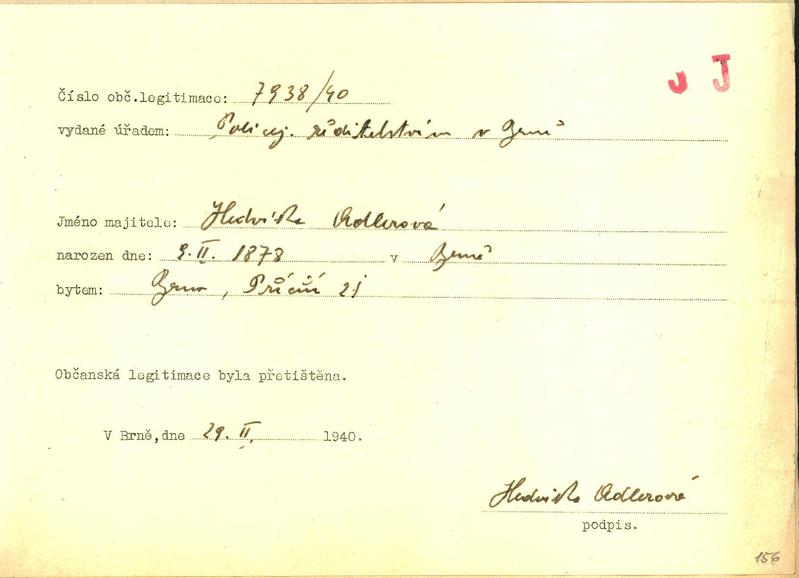 J J
Číslo obč.legitimace: 7938/40
vydané úřadem: Policej. ředitelstvím v Brně
Jméno majitele: Hedvika Adlerová
narozen dne: 9.II. 1878 v Brně
bytem: Brno, Příční 21
Občanská legitimace byla přetištěna.
V Brně,dne 29. II. 1940.
Hedvika Adlerová
podpis.
156